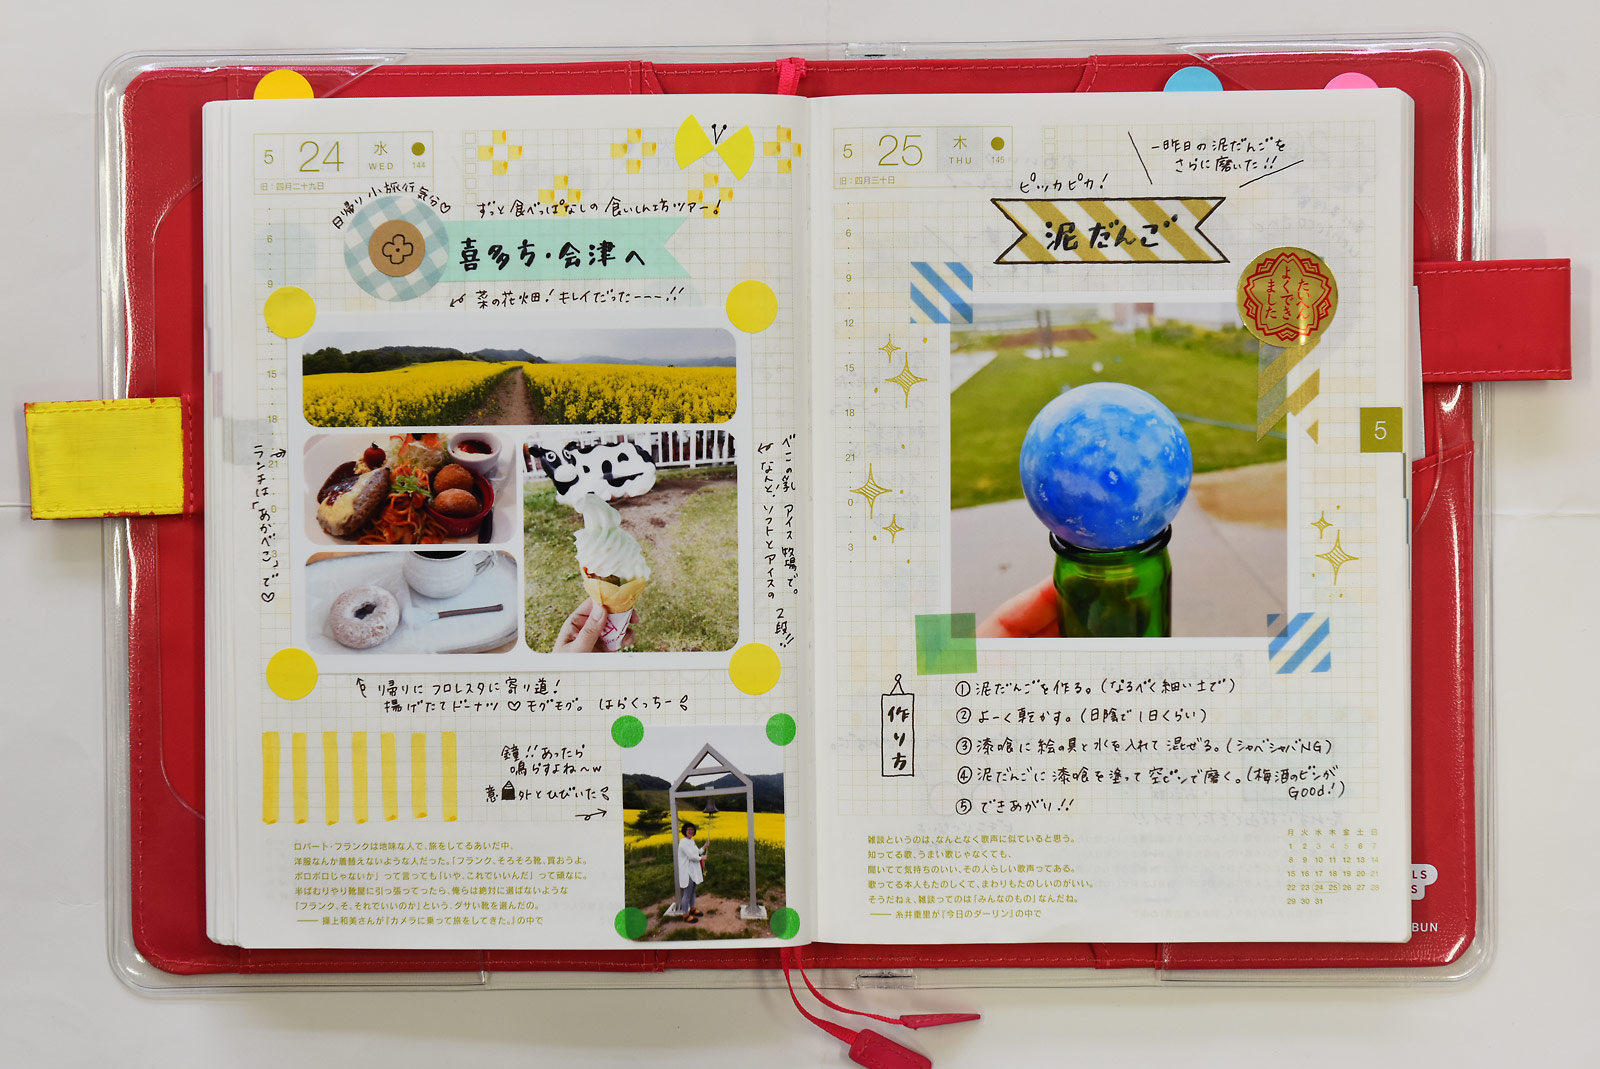 5 24 水 WED 144
旧：四月二十九日
日帰り小旅行気分♡
ずっと食べっぱなしの食いしん坊ツアー!
喜多方・会津へ
菜の花畑！キレイだったーーー!!
6
9
12
15
18
21
0
3
ランチは「あかべこ」で♡
べこの乳 アイス牧場で。
なんと、ソフトとアイスの2段!!
帰りにフロレスタに寄り道！
揚げたてドーナツ♡モグモグ。はらくっちー
鐘!!あったら
鳴らすよね〜w
意外とひびいた
ロバート・フランクは地味な人で、旅をしてるあいだ中、
洋服なんか着替えないような人だった。「フランク、そろそろ靴、買おうよ。
ボロボロじゃないか」って言っても「いや、これでいいんだ」って頑なに。
半ばむりやり靴屋に引っ張ってったら、俺らは絶対に選ばないような
「フランク、そ、それでいいのか」という、ダサい靴を選んだの。
—— 操上和美さんが『カメラに乗って旅をしてきた。』の中で
5 25 木 THU 145
旧：四月三十日
一昨日の泥だんごを
さらに磨いた!!
ピッカピカ！
泥だんご
たいへん
よくでき
ました
6
9
12
15
18
21
0
3
5
作り方
①泥だんごを作る。(なるべく細い土で)
②よーく乾かす。(日陰で1日くらい)
③漆喰に絵の具と水を入れて混ぜる。(シャバシャバNG)
④泥だんごに漆喰を塗って空ビンで磨く。(梅酒のビンが
Good!)
⑤できあがり!!
雑談というのは、なんとなく歌声に似ていると思う。
知ってる歌、うまい歌じゃなくても、
聞いてて気持ちのいい、その人らしい歌声ってある。
歌ってる本人もたのしくて、まわりもたのしいのがいい。
そうだねぇ、雑談ってのは「みんなのもの」なんだね。
—— 糸井重里が『今日のダーリン』の中で
月 火 水 木 金 土 日
1 2 3 4 5 6 7
8 9 10 11 12 13 14
15 16 17 18 19 20 21
22 23 24 25 26 27 28
29 30 31
LS
S
BUN